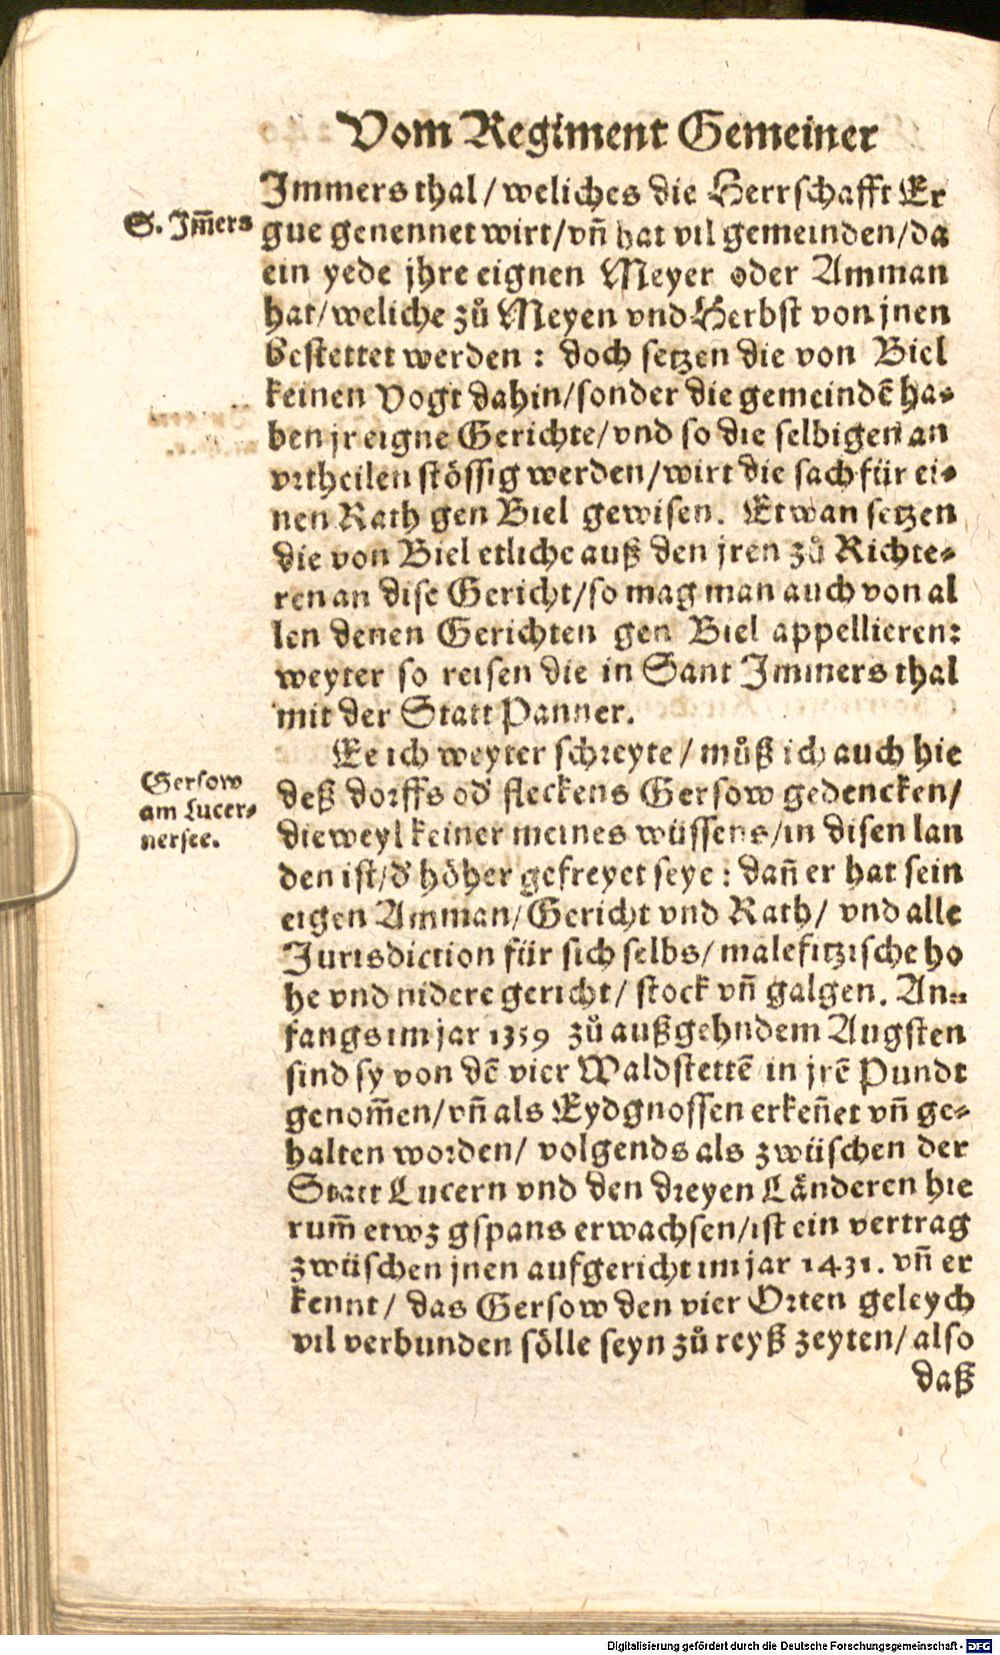 Vom Regiment Gemeiner
Immers thal / weliches die Herrschafft Er
S. Im̃ers
gue genennet wirt/vñ hat vil gemeinden/da
ein yede jhre eignen Meyer oder Amman
hat/weliche zů Meyen vnd Herbst von jnen
bestettet werden : doch setzen die von Biel
keinen Vogt dahin/sonder die gemeindẽ ha-
ben jr eigne Gerichte/vnd so die selbigen an
vrtheilen stössig werden/wirt die sach für ei-
nen Rath gen Biel gewisen. Etwan setzen
die von Biel etliche auß den jren zů Richte-
ren an dise Gericht/so mag man auch von al
len denen Gerichten gen Biel appellieren:
weyter so reisen die in Sant Immers thal
mit der Statt Panner.
Ee ich weyter schreyte / můß ich auch hie
Gersow
am Lucer-
nersee.
deß dorffs od' fleckens Gersow gedencken/
dieweyl keiner meines wüssens/in disen lan
den ist/d' höher gefreyet seye : dañ er hat sein
eigen Amman/Gericht vnd Rath/ vnd alle
Jurisdiction für sich selbs/ malefitzische ho
he vnd nidere gericht/ stock vñ galgen. An-
fangs im jar 1359 zů außgehndem Augsten
sind sy von dẽ vier Waldstettẽ in jrẽ Pundt
genom̃en/vñ als Eydgnossen erkeñet vñ ge-
halten worden/ volgends als zwüschen der
Statt Lucern vnd den dreyen Länderen hie
rum̃ etwz gspans erwachsen/ist ein vertrag
zwüschen jnen aufgericht im jar 1431. vñ er
kennt/ das Gersow den vier Orten geleych
vil verbunden sölle seyn zů reyß zeyten/ also
daß
Digitalisierung gefördert durch die Deutsche Forschungsgemeinschaft - DFG